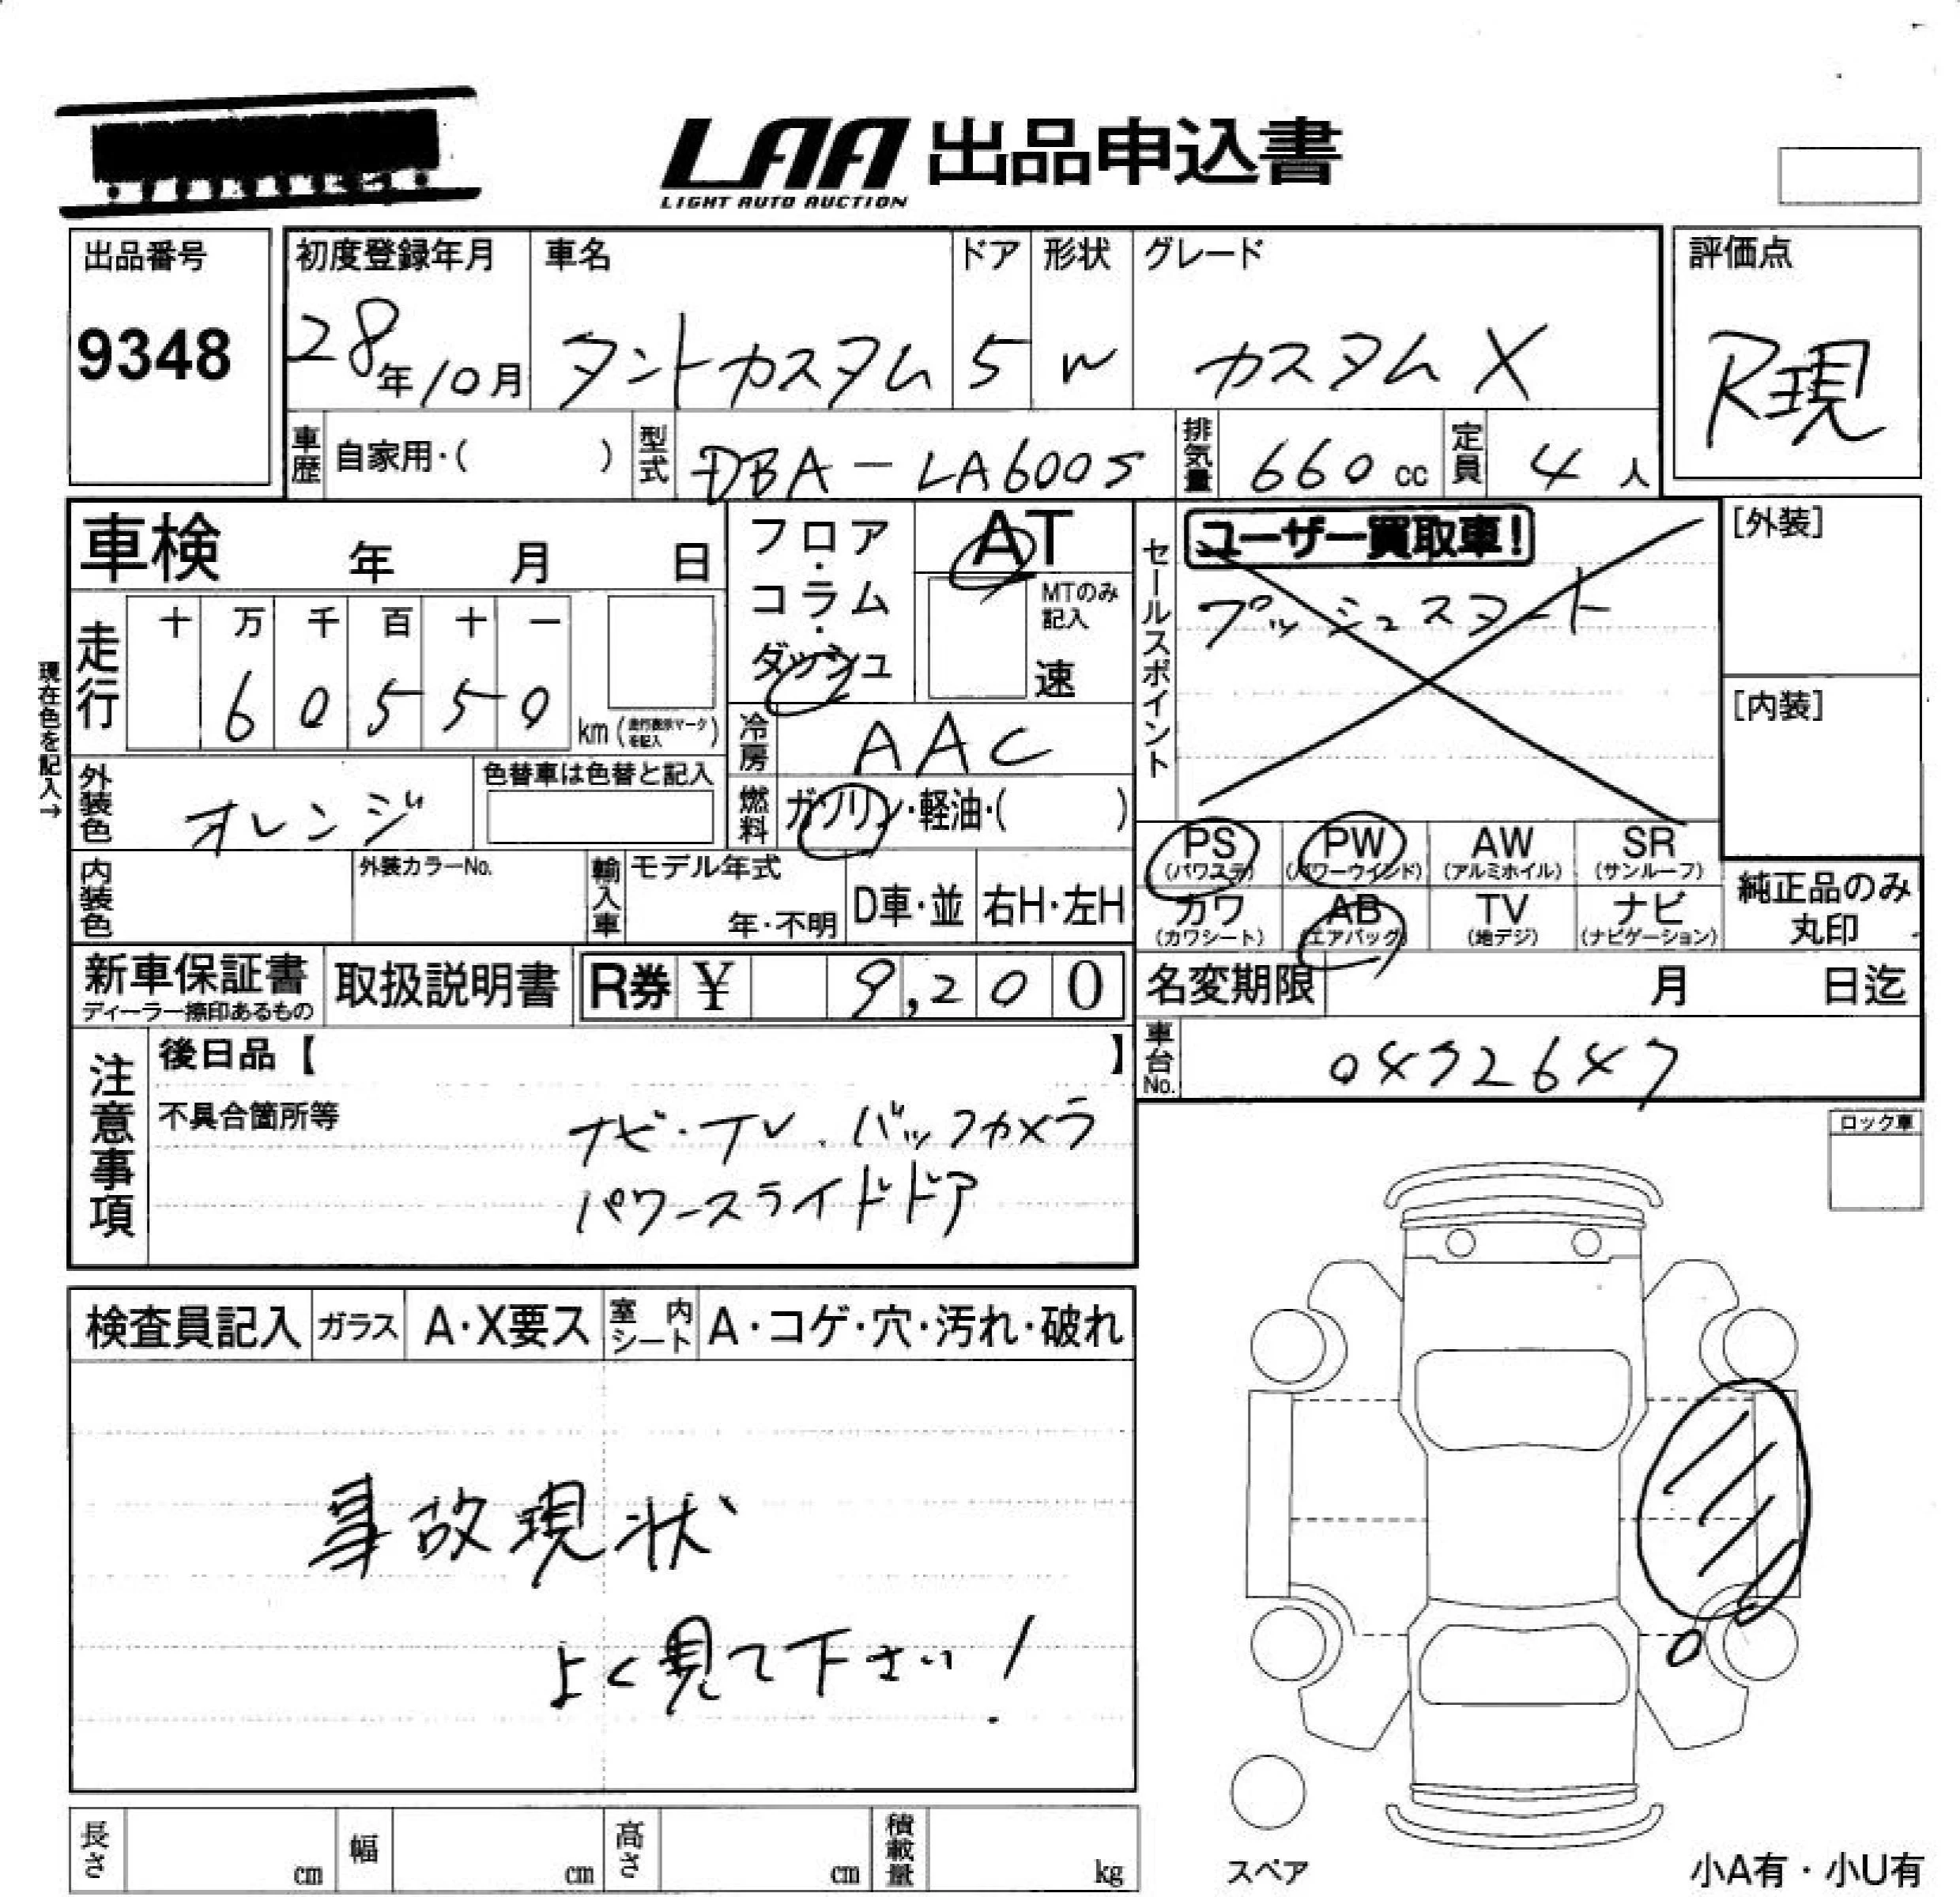 LAA 出品申込書
LIGHT AUTO AUCTION
出品番号
9348
初度登録年月
28年10月
車名
タントカスタム
ドア
5
形状
W
グレード
カスタムX
評価点
R現
車歴 自家用・( )
型式 DBA-LA600S
排気量 660 cc
定員 4 人
車検 年 月 日
フロア・コラム・ダッシュ
AT
MTのみ記入
速
現在色を記入→
走行
十 万 千 百 十 一
6 0 5 5 0 km (走行表示マークを記入)
冷房 AAC
外装色 オレンジ
色替車は色替と記入
燃料 ガソリン・軽油・( )
セールスポイント
ユーザー買取車!
プッシュスタート
[外装]
[内装]
PS (パワステ) PW (パワーウインド) AW (アルミホイル) SR (サンルーフ)
カワ (カワシート) AB (エアバック) TV (地デジ) ナビ (ナビゲーション)
純正品のみ丸印
内装色
外装カラーNo.
輸入車 モデル年式 年・不明 D車・並 右H・左H
新車保証書
ディーラー捺印あるもの
取扱説明書
R券 ¥ 9,200
名変期限 月 日迄
車台No. 0432647
注意事項
後日品【 】
不具合箇所等
ナビ・TV.バックカメラ
パワースライドドア
ロック車
検査員記入 ガラス A・X要ス 室内シート A・コゲ・穴・汚れ・破れ
事故現状
よく見て下さい!
長さ cm 幅 cm 高さ cm 積載量 kg
スペア
小A有・小U有